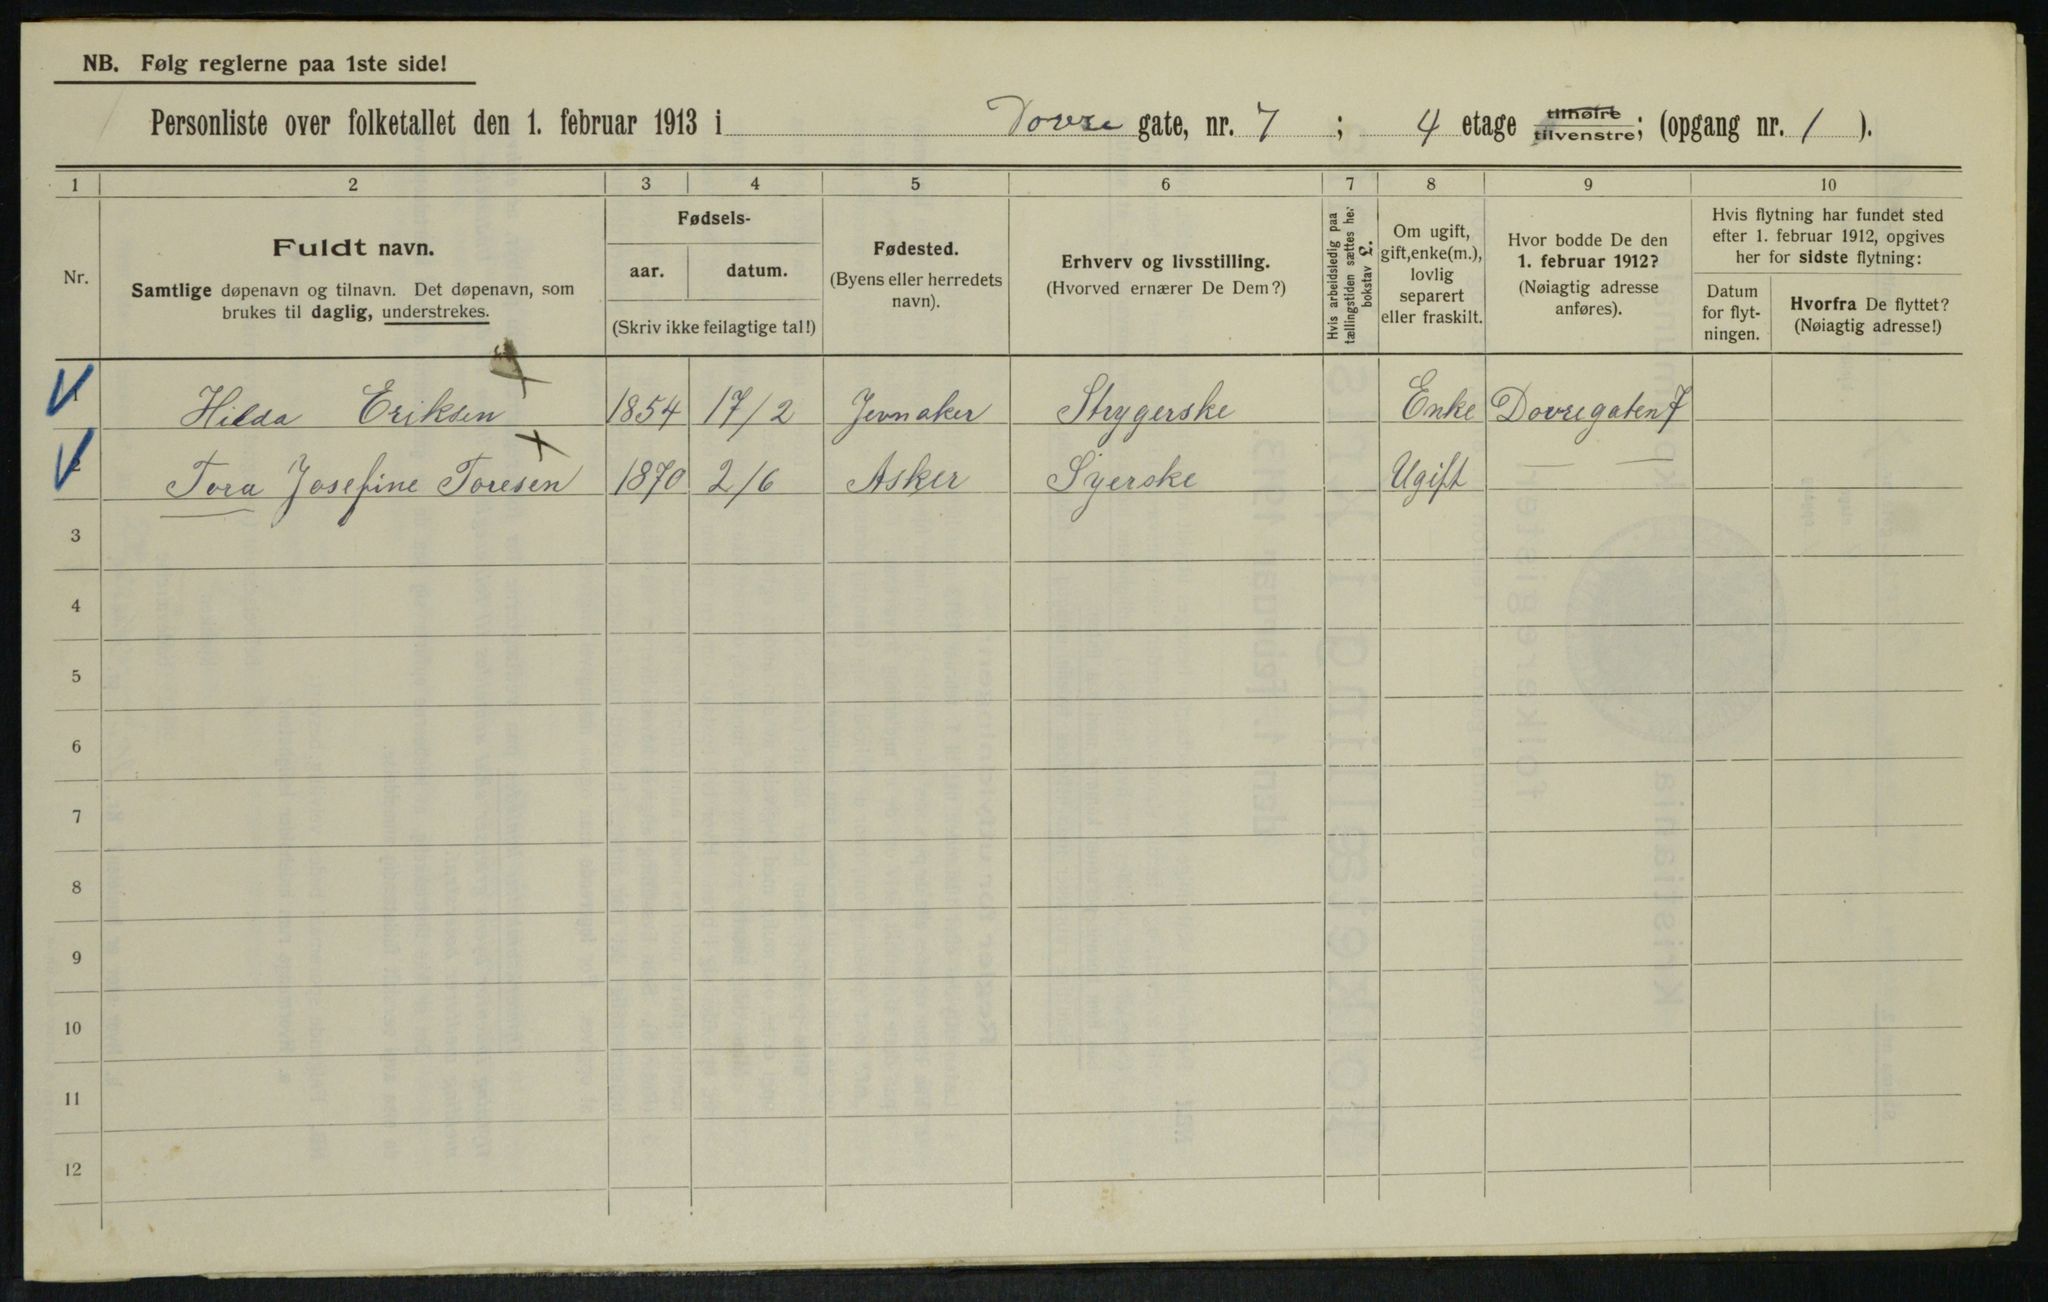 NB. Følg reglerne paa 1ste side!
Personliste over folketallet den 1. februar 1913 i Dovre gate, nr. 7 ; 4 etage tilhøire tilvenstre; (opgang nr. 1 ).
1 2 3 4 5 6 7 8 9 10
Nr.
Fuldt navn.
Samtlige døpenavn og tilnavn. Det døpenavn, som
brukes til daglig, understrekes.
Fødsels-
aar. datum.
(Skriv ikke feilagtige tal!)
Fødested.
(Byens eller herredets
navn).
Erhverv og livsstilling.
(Hvorved ernærer De Dem?)
Hvis arbeidsledig paa
tællingstiden sættes her
bokstav L.
Om ugift,
gift, enke(m.),
lovlig
separert
eller fraskilt.
Hvor bodde De den
1. februar 1912?
(Nøiagtig adresse
anføres).
Hvis flytning har fundet sted
efter 1. februar 1912, opgives
her for sidste flytning:
Datum
for flyt-
ningen.
Hvorfra De flyttet?
(Nøiagtig adresse!)
1 Hilda Eriksen 1854 17/2 Jevnaker Strygerske Enke Dovregaten 7
2 Tora Josefine Toresen 1870 2/6 Asker Syerske Ugift — —
3
4
5
6
7
8
9
10
11
12